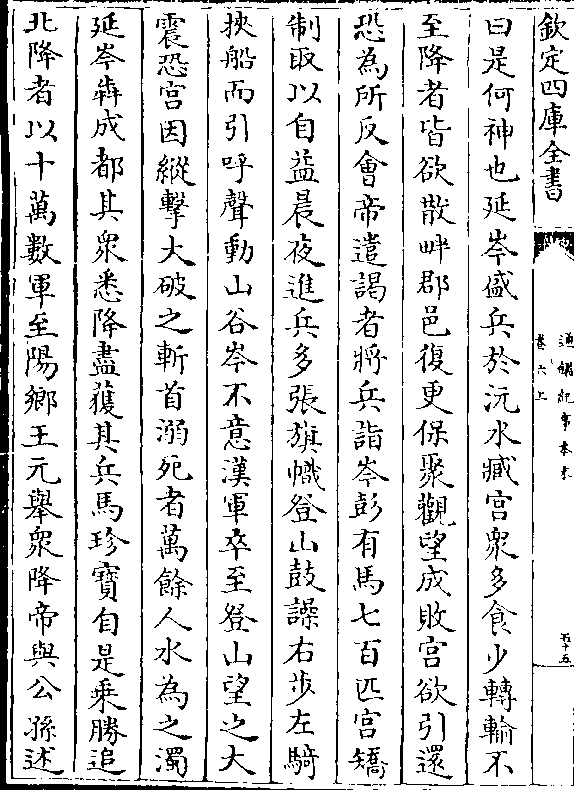 欽定四庫全書
通鑑紀事本末
卷六上
五十五
曰是何神也延岑盛兵於沅水臧宫衆多食少轉輸不
至降者皆欲散畔郡邑復更保聚觀望成敗宫欲引還
恐為所反會帝遣謁者將兵詣岑彭有馬七百匹宫矯
制取以自益晨夜進兵多張旗幟登山鼓譟右步左騎
挾船而引呼聲動山谷岑不意漢軍卒至登山望之大
震恐宫因縱擊大破之斬首溺死者萬餘人水為之濁
延岑犇成都其衆悉降盡獲其兵馬珍寶自是乗勝追
北降者以十萬數軍至陽鄉王元舉衆降帝與公孫述